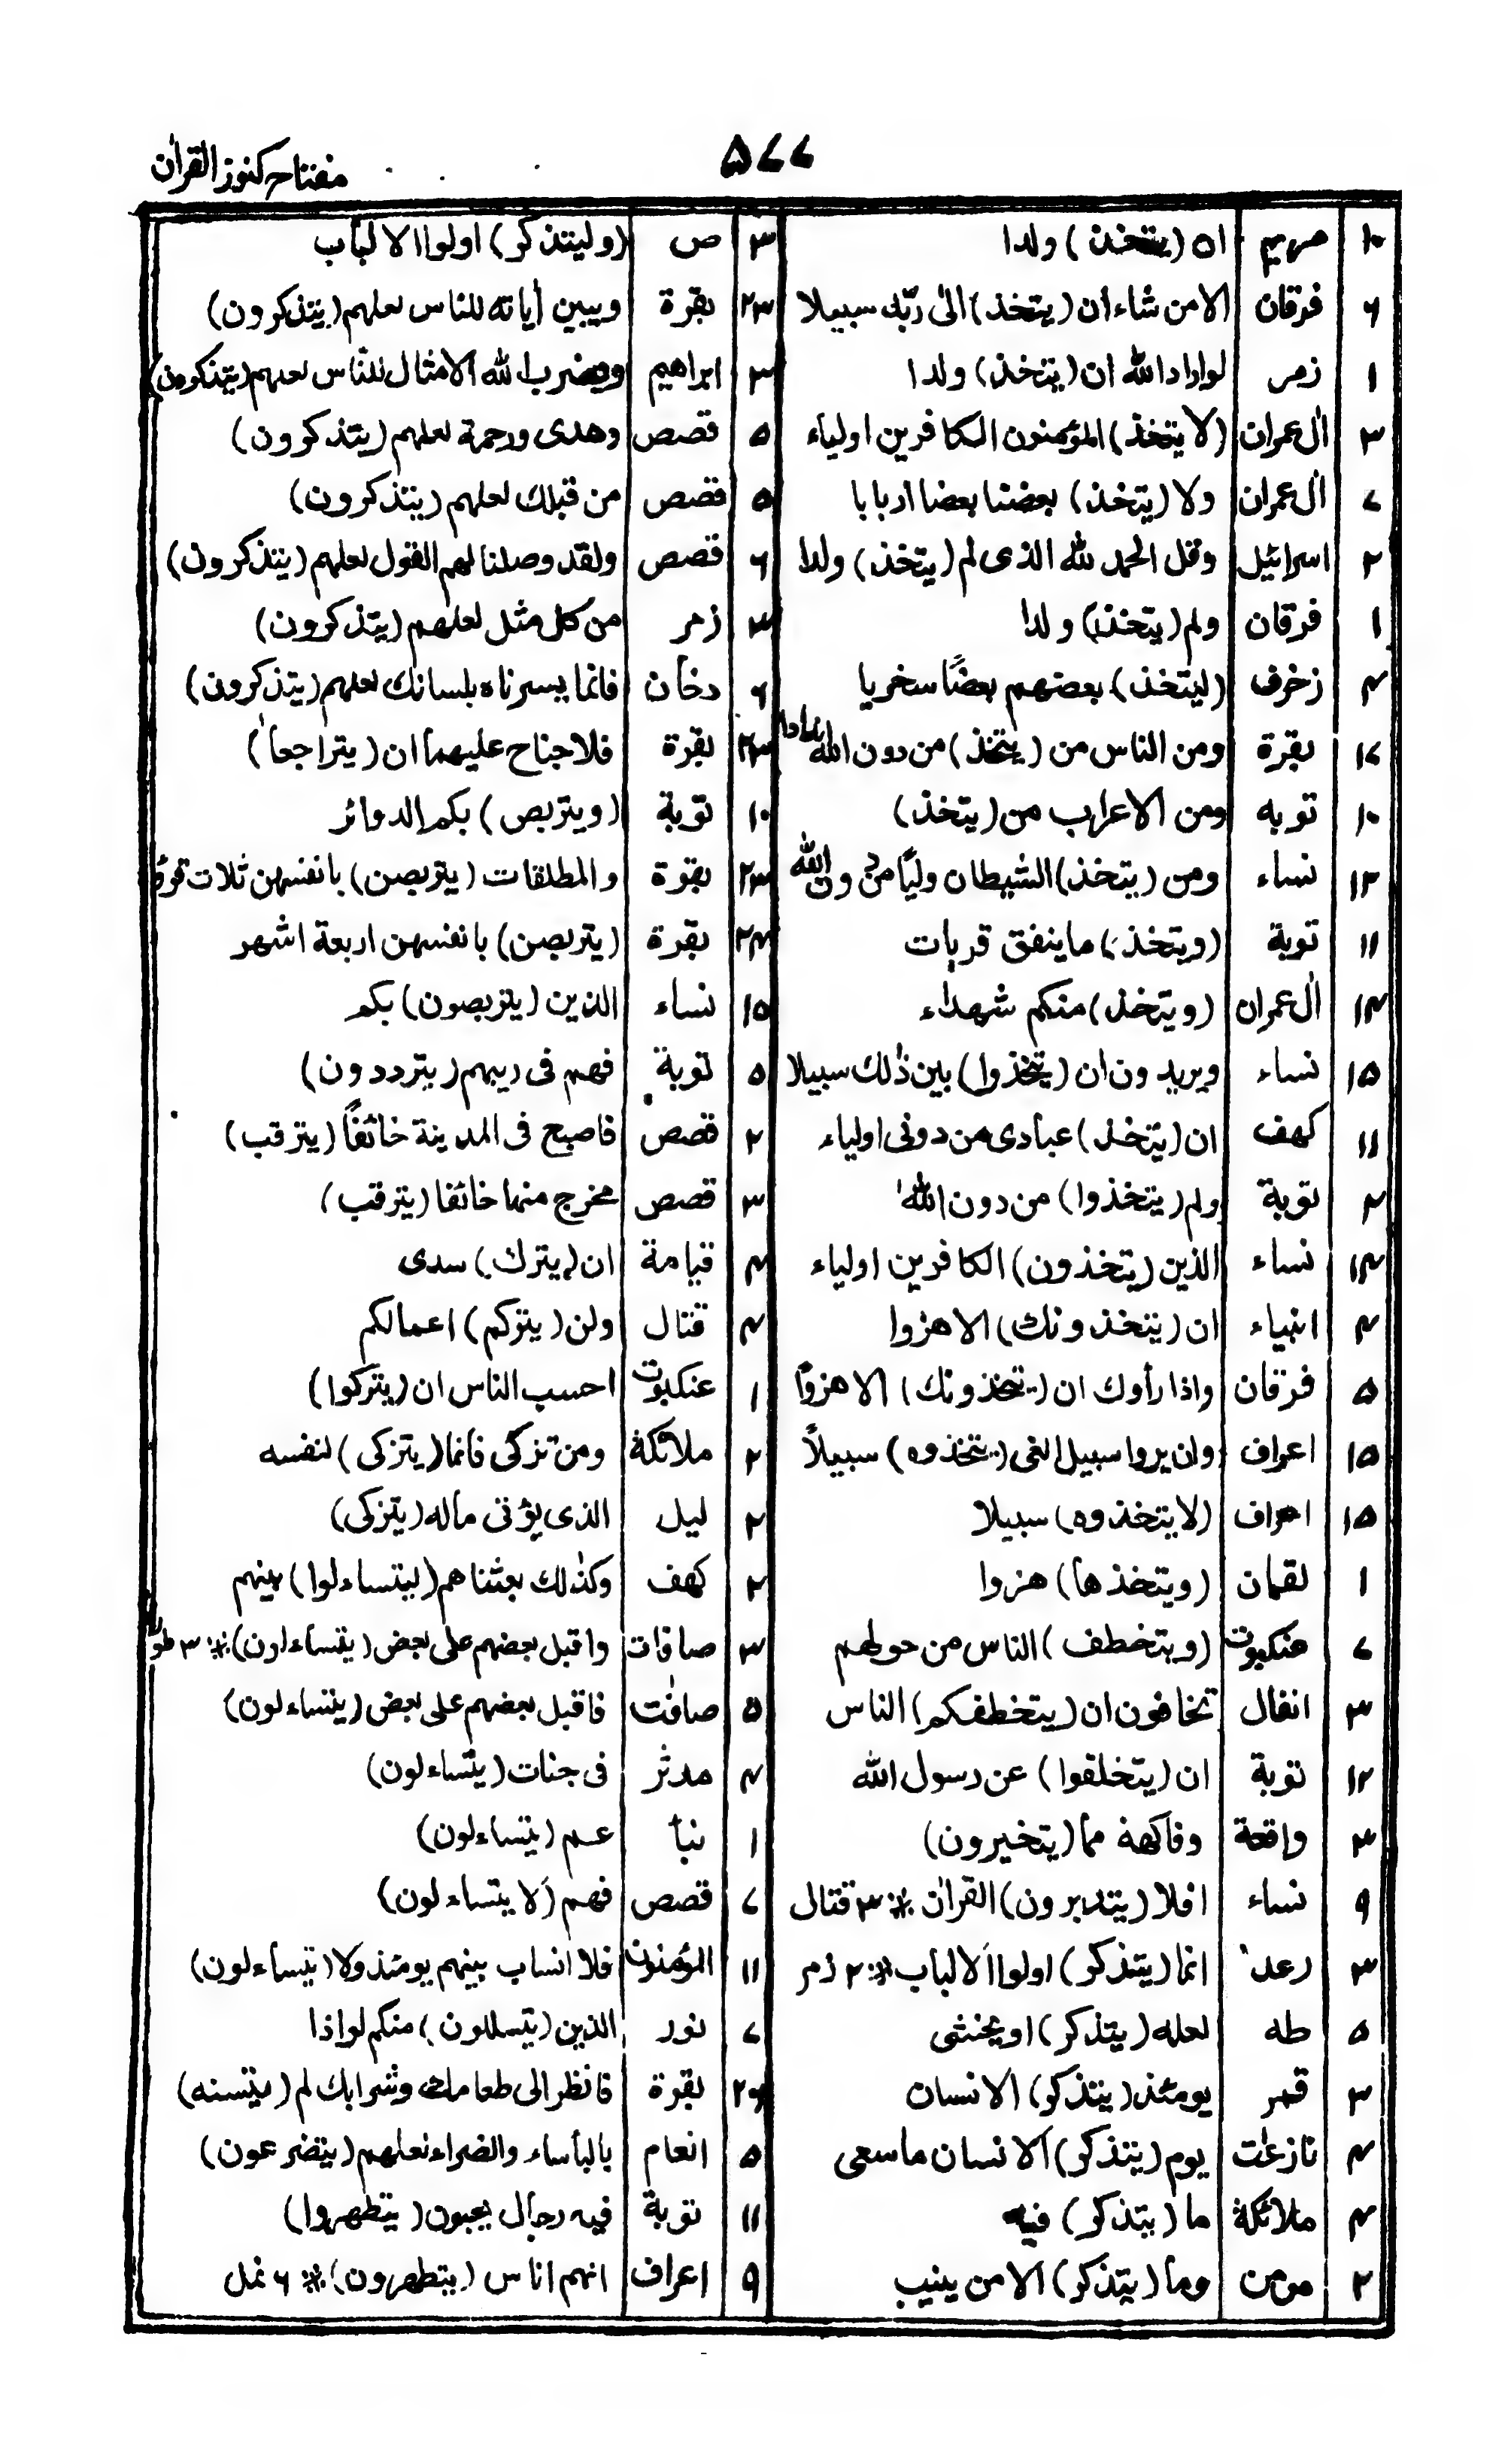 ۵۷۷
مفتاح کنوز القرآن
۱۰ مريم ان (يتخذ) ولدا
۶ فرقان الا من شاء ان (يتخذ) الى ربّك سبيلا
۱ زمر لو اراد الله ان (يتخذ) ولدا
۳ اٰل عمران (لا يتخذ) المؤمنون الكافرين اولياء
۷ اٰل عمران ولا (يتخذ) بعضنا بعضا اربابا
۲ اسرائيل وقل الحمد لله الذى لم (يتخذ) ولدا
۱ فرقان ولم (يتخذ) ولدا
۴ زخرف (ليتخذ) بعضهم بعضًا سخريا
۱۷ بقرة ومن الناس من (يتخذ) من دون الله اندادا
۱۰ توبه ومن الاعراب من (يتخذ)
۱۳ نساء ومن (يتخذ) الشيطان وليًا من دون الله
۱۱ توبة (ويتخذ) ما ينفق قربات
۱۴ اٰل عمران (ويتخذ) منكم شهداء
۱۵ نساء ويريدون ان (يتخذوا) بين ذٰلك سبيلا
۱۱ كهف ان (يتخذ) عبادى من دونى اولياء
۲ توبة ولم (يتخذوا) من دون الله
۱۴ نساء الذين (يتخذون) الكافرين اولياء
۴ انبياء ان (يتخذونك) الا هزوا
۵ فرقان واذا رأوك ان (يتخذونك) الا هزوًا
۱۵ اعراف وان يروا سبيل الغى (يتخذوه) سبيلاً
۱۵ اعراف (لا يتخذوه) سبيلا
۱ لقمان (ويتخذها) هزوا
۷ عنكبوت (ويتخطف) الناس من حولهم
۳ انفال تخافون ان (يتخطفكم) الناس
۱۲ توبة ان (يتخلفوا) عن رسول الله
۳ واقعة وفاكهة مما (يتخيرون)
۹ نساء افلا (يتدبرون) القرآن ※ ۳ قتال
۳ رعد انما (يتذكر) اولوا الالباب ※ ۲ زمر
۵ طه لعله (يتذكر) او يخشى
۳ قمر يومئذ (يتذكر) الانسان
۴ نازعٰت يوم (يتذكر) الانسان ما سعى
۴ ملائكة ما (يتذكر) فيه
۲ مومن وما (يتذكر) الا من ينيب
۳ ص (وليتذكر) اولوا الالباب
۲۳ بقرة ويبين اٰياته للناس لعلهم (يتذكرون)
۳ ابراهيم ويضرب الله الامثال للنّاس لعلهم (يتذكرون)
۵ قصص وهدى ورحمة لعلهم (يتذكرون)
۵ قصص من قبلك لعلهم (يتذكرون)
۶ قصص ولقد وصلنا لهم القول لعلهم (يتذكرون)
۳ زمر من كل مثل لعلهم (يتذكرون)
۶ دخان فانما يسرناه بلسانك لعلهم (يتذكرون)
۲۳ بقرة فلا جناح عليهما ان (يتراجعا)
۱۰ توبة (ويتربص) بكم الدوائر
۲۳ بقرة والمطلقات (يتربصن) بانفسهن ثلاث قروء
۲۴ بقرة (يتربصن) بانفسهن اربعة اشهر
۱۵ نساء الذين (يتربصون) بكم
۵ توبة فهم فى ريبهم (يترددون)
۲ قصص فاصبح فى المدينة خائفًا (يترقب)
۳ قصص فخرج منها خائفا (يترقب)
۴ قيامة ان (يترك) سدى
۴ قتال ولن (يتركم) اعمالكم
۱ عنكبوت احسب الناس ان (يتركوا)
۲ ملائكة ومن تزكى فانما (يتزكى) لنفسه
۲ ليل الذى يؤتى ماله (يتزكى)
۲ كهف وكذلك بعثناهم (ليتساءلوا) بينهم
۳ صافات واقبل بعضهم على بعض (يتساءلون) ※ ۳ طور
۵ صافٰت فاقبل بعضهم على بعض (يتساءلون)
۴ مدثر فى جنات (يتساءلون)
۱ نبأ عم (يتساءلون)
۷ قصص فهم (لا يتساءلون)
۱۱ المؤمنون فلا انساب بينهم يومئذ ولا (يتساءلون)
۷ نور الذين (يتسللون) منكم لواذا
۲۶ بقرة فانظر الى طعامك وشرابك لم (يتسنه)
۵ انعام بالبأساء والضراء لعلهم (يتضرعون)
۱۱ توبة فيه رجال يحبون (يتطهروا)
۹ اعراف انهم اناس (يتطهرون) ※ ۶ نمل